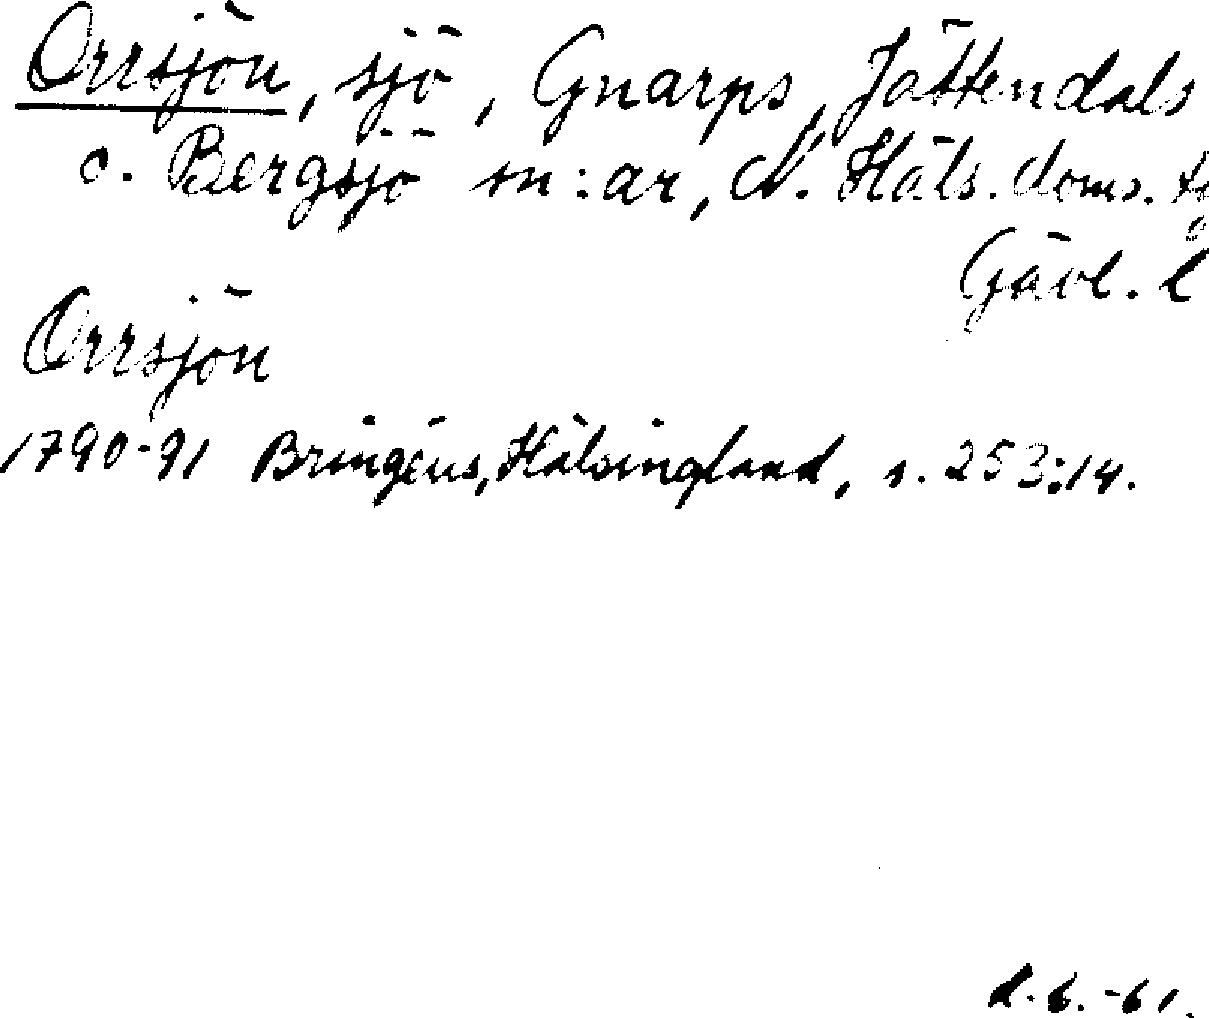 Orrsjön, sjö, Gnarps, Jättendals
o. Bergsjö sn:ar, N. Häls. doms.
Gävl. l
Orrsjön
1790-91 Bringéus, Hälsingland, s. 253:14.
-61.